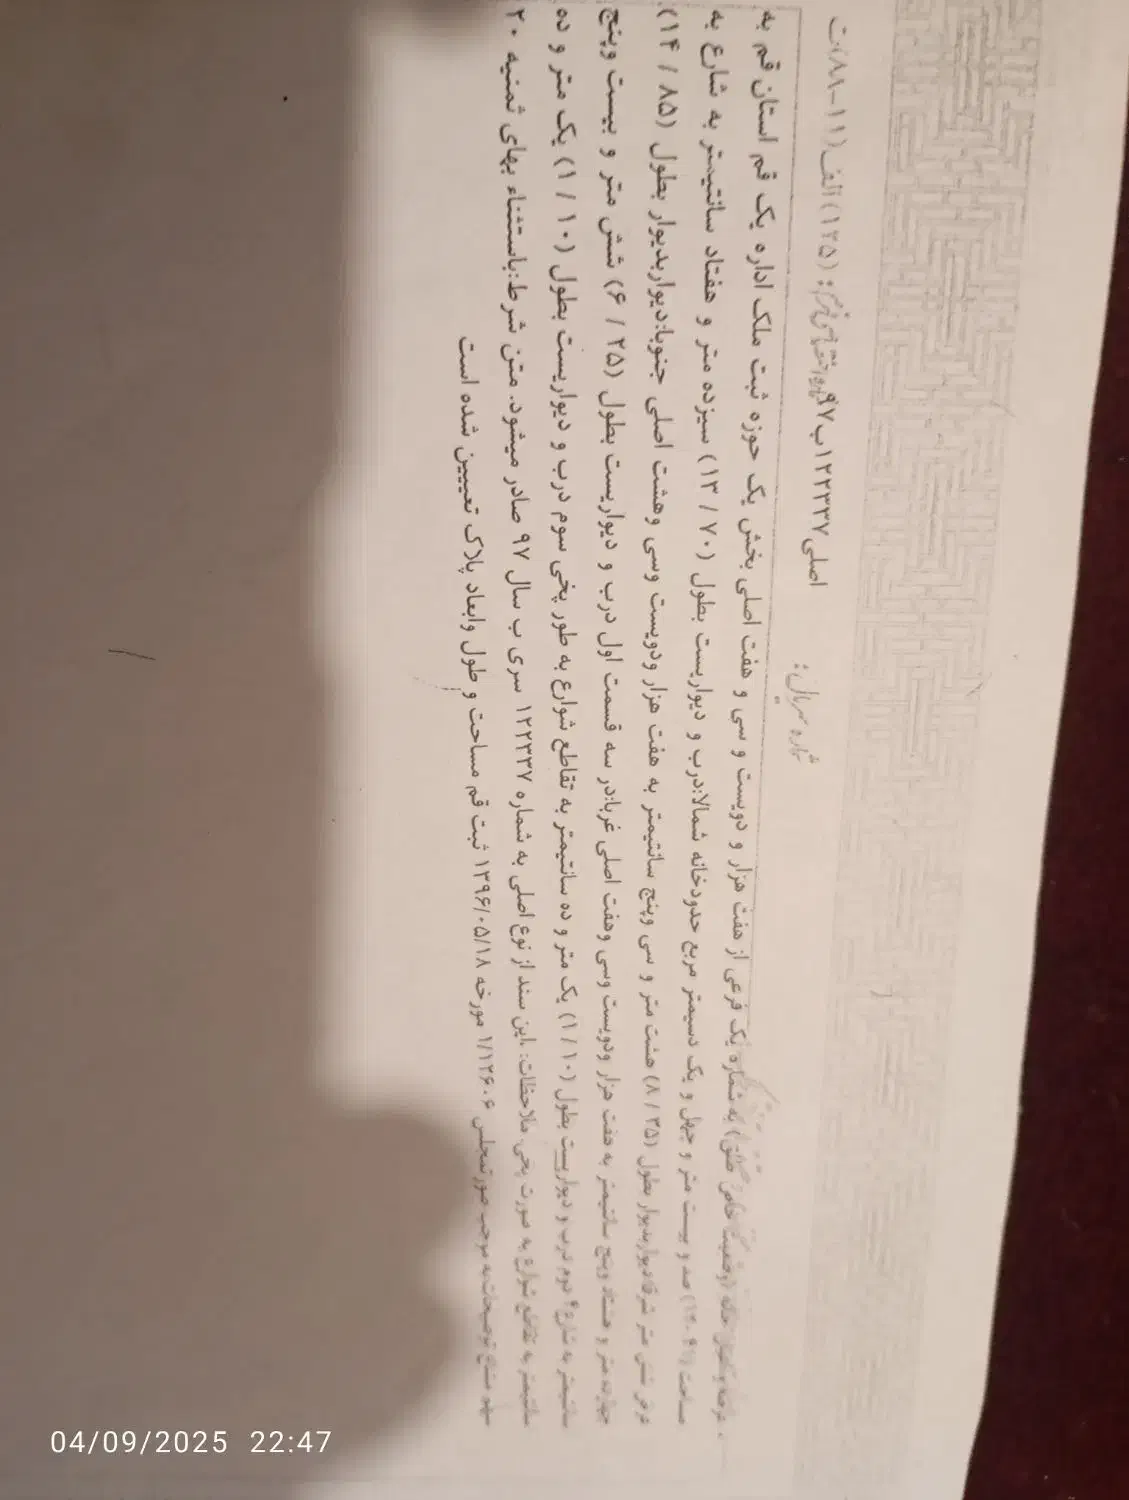 شماره سریال:
اصلی ۱۲۲۳۳۷ب۹۷ (۱۲۵) الف (۱۱-۸۸)ت
به شماره یک فرعی از هفت هزار و دویست و سی و هفت اصلی بخش یک حوزه ثبت ملک اداره یک قم استان قم به
مساحت صد و بیست متر و چهل و یک دسیمتر مربع حدودخانه شمالا:درب و دیواریست بطول (۷۰ / ۱۳) سیزده متر و هفتاد سانتیمتر به شارع به
عرض شش متر شرقا:دیواربدیوار بطول (۳۵ / ۸) هشت متر و سی وپنج سانتیمتر به هفت هزار ودویست وسی وهشت اصلی جنوبا:دیواربدیوار بطول (۸۵ / ۱۴)
چهارده متر و هشتاد وپنج سانتیمتر به هفت هزار ودویست وسی وهفت اصلی غربا:در سه قسمت اول درب و دیواریست بطول (۲۵ / ۶) شش متر و بیست وپنج
سانتیمتر به شارع۹ دوم درب و دیواریست بطول (۱۰ / ۱) یک متر و ده سانتیمتر به تقاطع شوارع به طور یخی سوم درب و دیواریست بطول (۱۰ / ۱) یک متر و ده
سانتیمتر به تقاطع شوارع به صورت پخی ملاحظات: .این سند از نوع اصلی به شماره ۱۲۲۳۳۷ سری ب سال ۹۷ صادر میشود. متن شرط:باستثناء بهای ثمنیه ۲۰
سهم مشاع توضیحات:به موجب صورتمجلس ۱/۱۲۶۰۶ مورخه ۱۳۹۶/۰۵/۱۸ ثبت قم مساحت و طول وابعاد پلاک تعیین شده است
04/09/2025 22:47